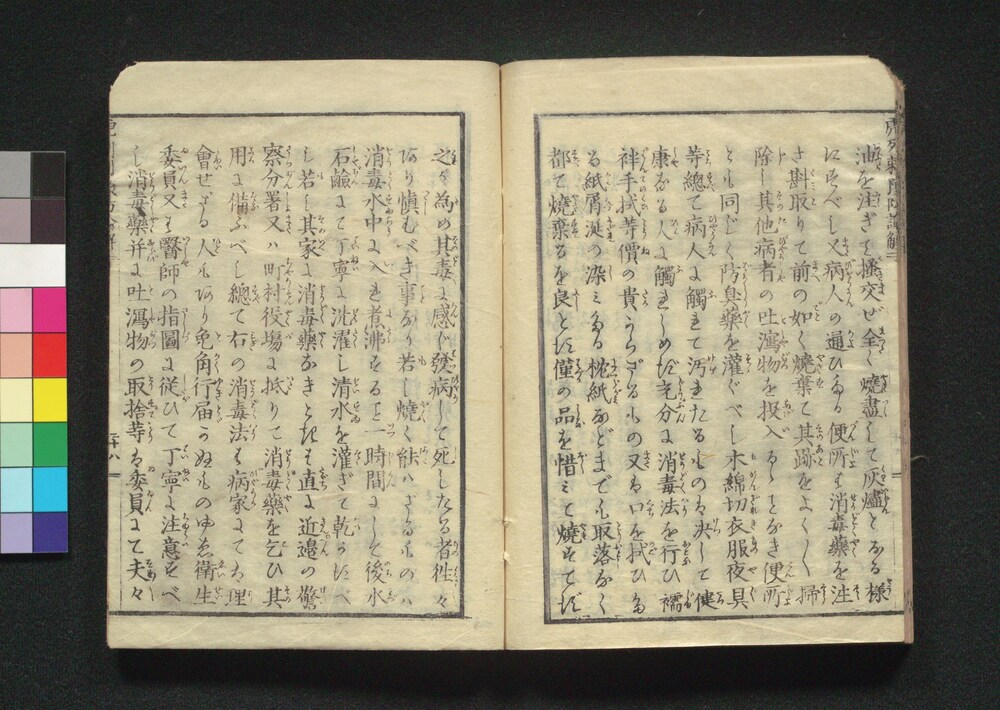 油を注ぎて攪交ぜ全く燒盡して灰燼となる樣
にすべし又病人の通ひたる便所も消毒藥を注
ぎ斟取りて前の如く燒棄て其跡をよく〳〵掃
除し其他病者の吐瀉物を投入るゝとなき便所
とも同じく防臭藥を灌ぐべし木綿切衣服夜具
等總て病人に觸れて汚れたるものは决して健
康なる人に觸れしめず充分に消毒法を行ひ襦
袢手拭等價の貴からざるもの又は口を拭ひた
る紙屑涎の染みたる枕紙などまでも取落なく
都て燒棄るを良とす僅の品を惜みて燒すてず
之が為め其毒に感じ發病して死したる者徃々
あり愼むべき事なり若し燒く能はざるものハ
消毒水中に入れ煮沸する𪜈一時間にして後水
石鹼にて丁寧に洗濯し清水を灌ぎて乾かすべ
し若し其家に消毒藥なきときは直に近邉の警
察分署又ハ町村役塲に抵りて消毒藥を乞ひ其
用に備ふべし總て右の消毒法は病家にてハ理
會せざる人もあり兎角行届かぬものゆゑ衛生
委員又は醫師の指圖に従ひて丁寧に注意すべ
し消毒藥并に吐瀉物の取捨等は委員にて夫々
二十八